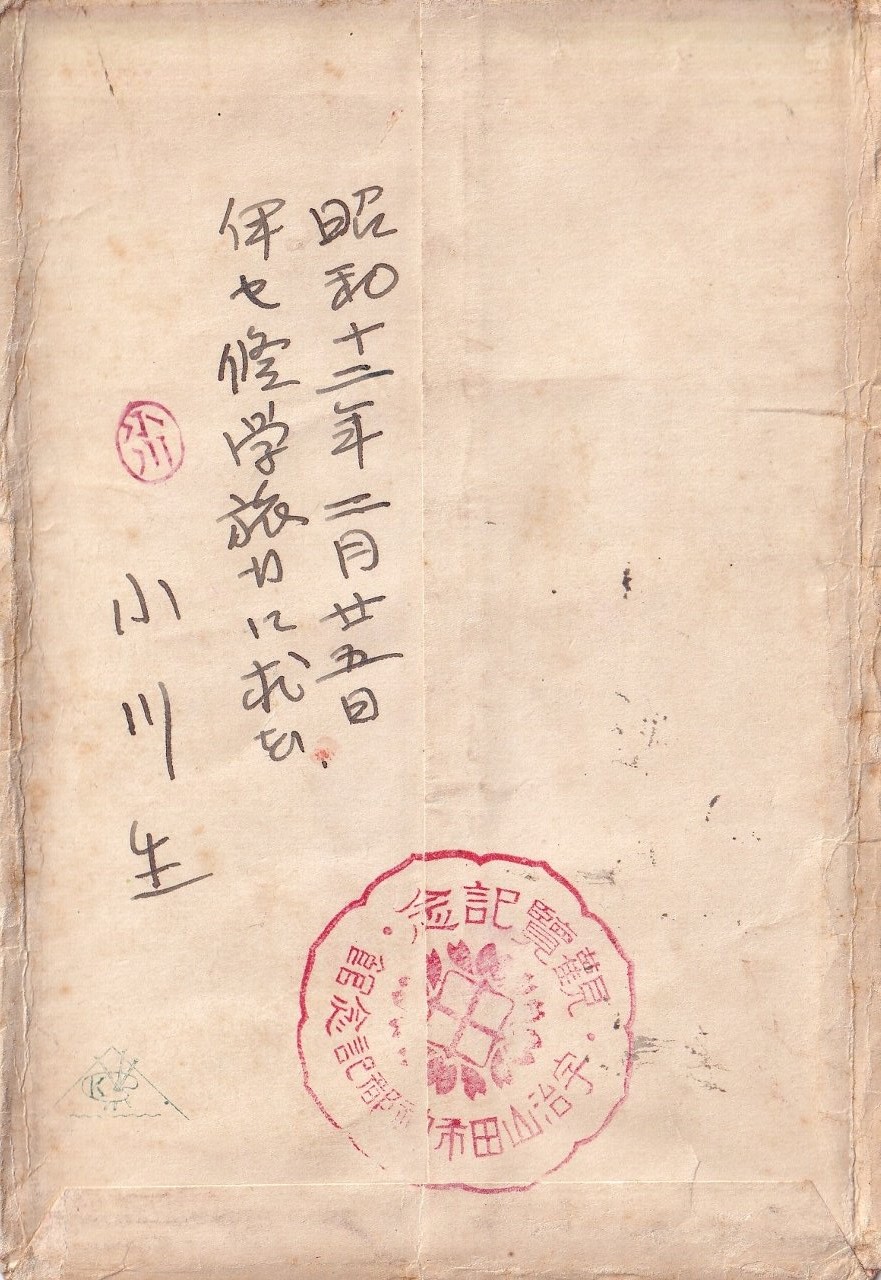 昭和十二年二月廿五日
伊セ修学旅行に求む
小川生
小川
觀覽記念
宇治山田市神都記念館